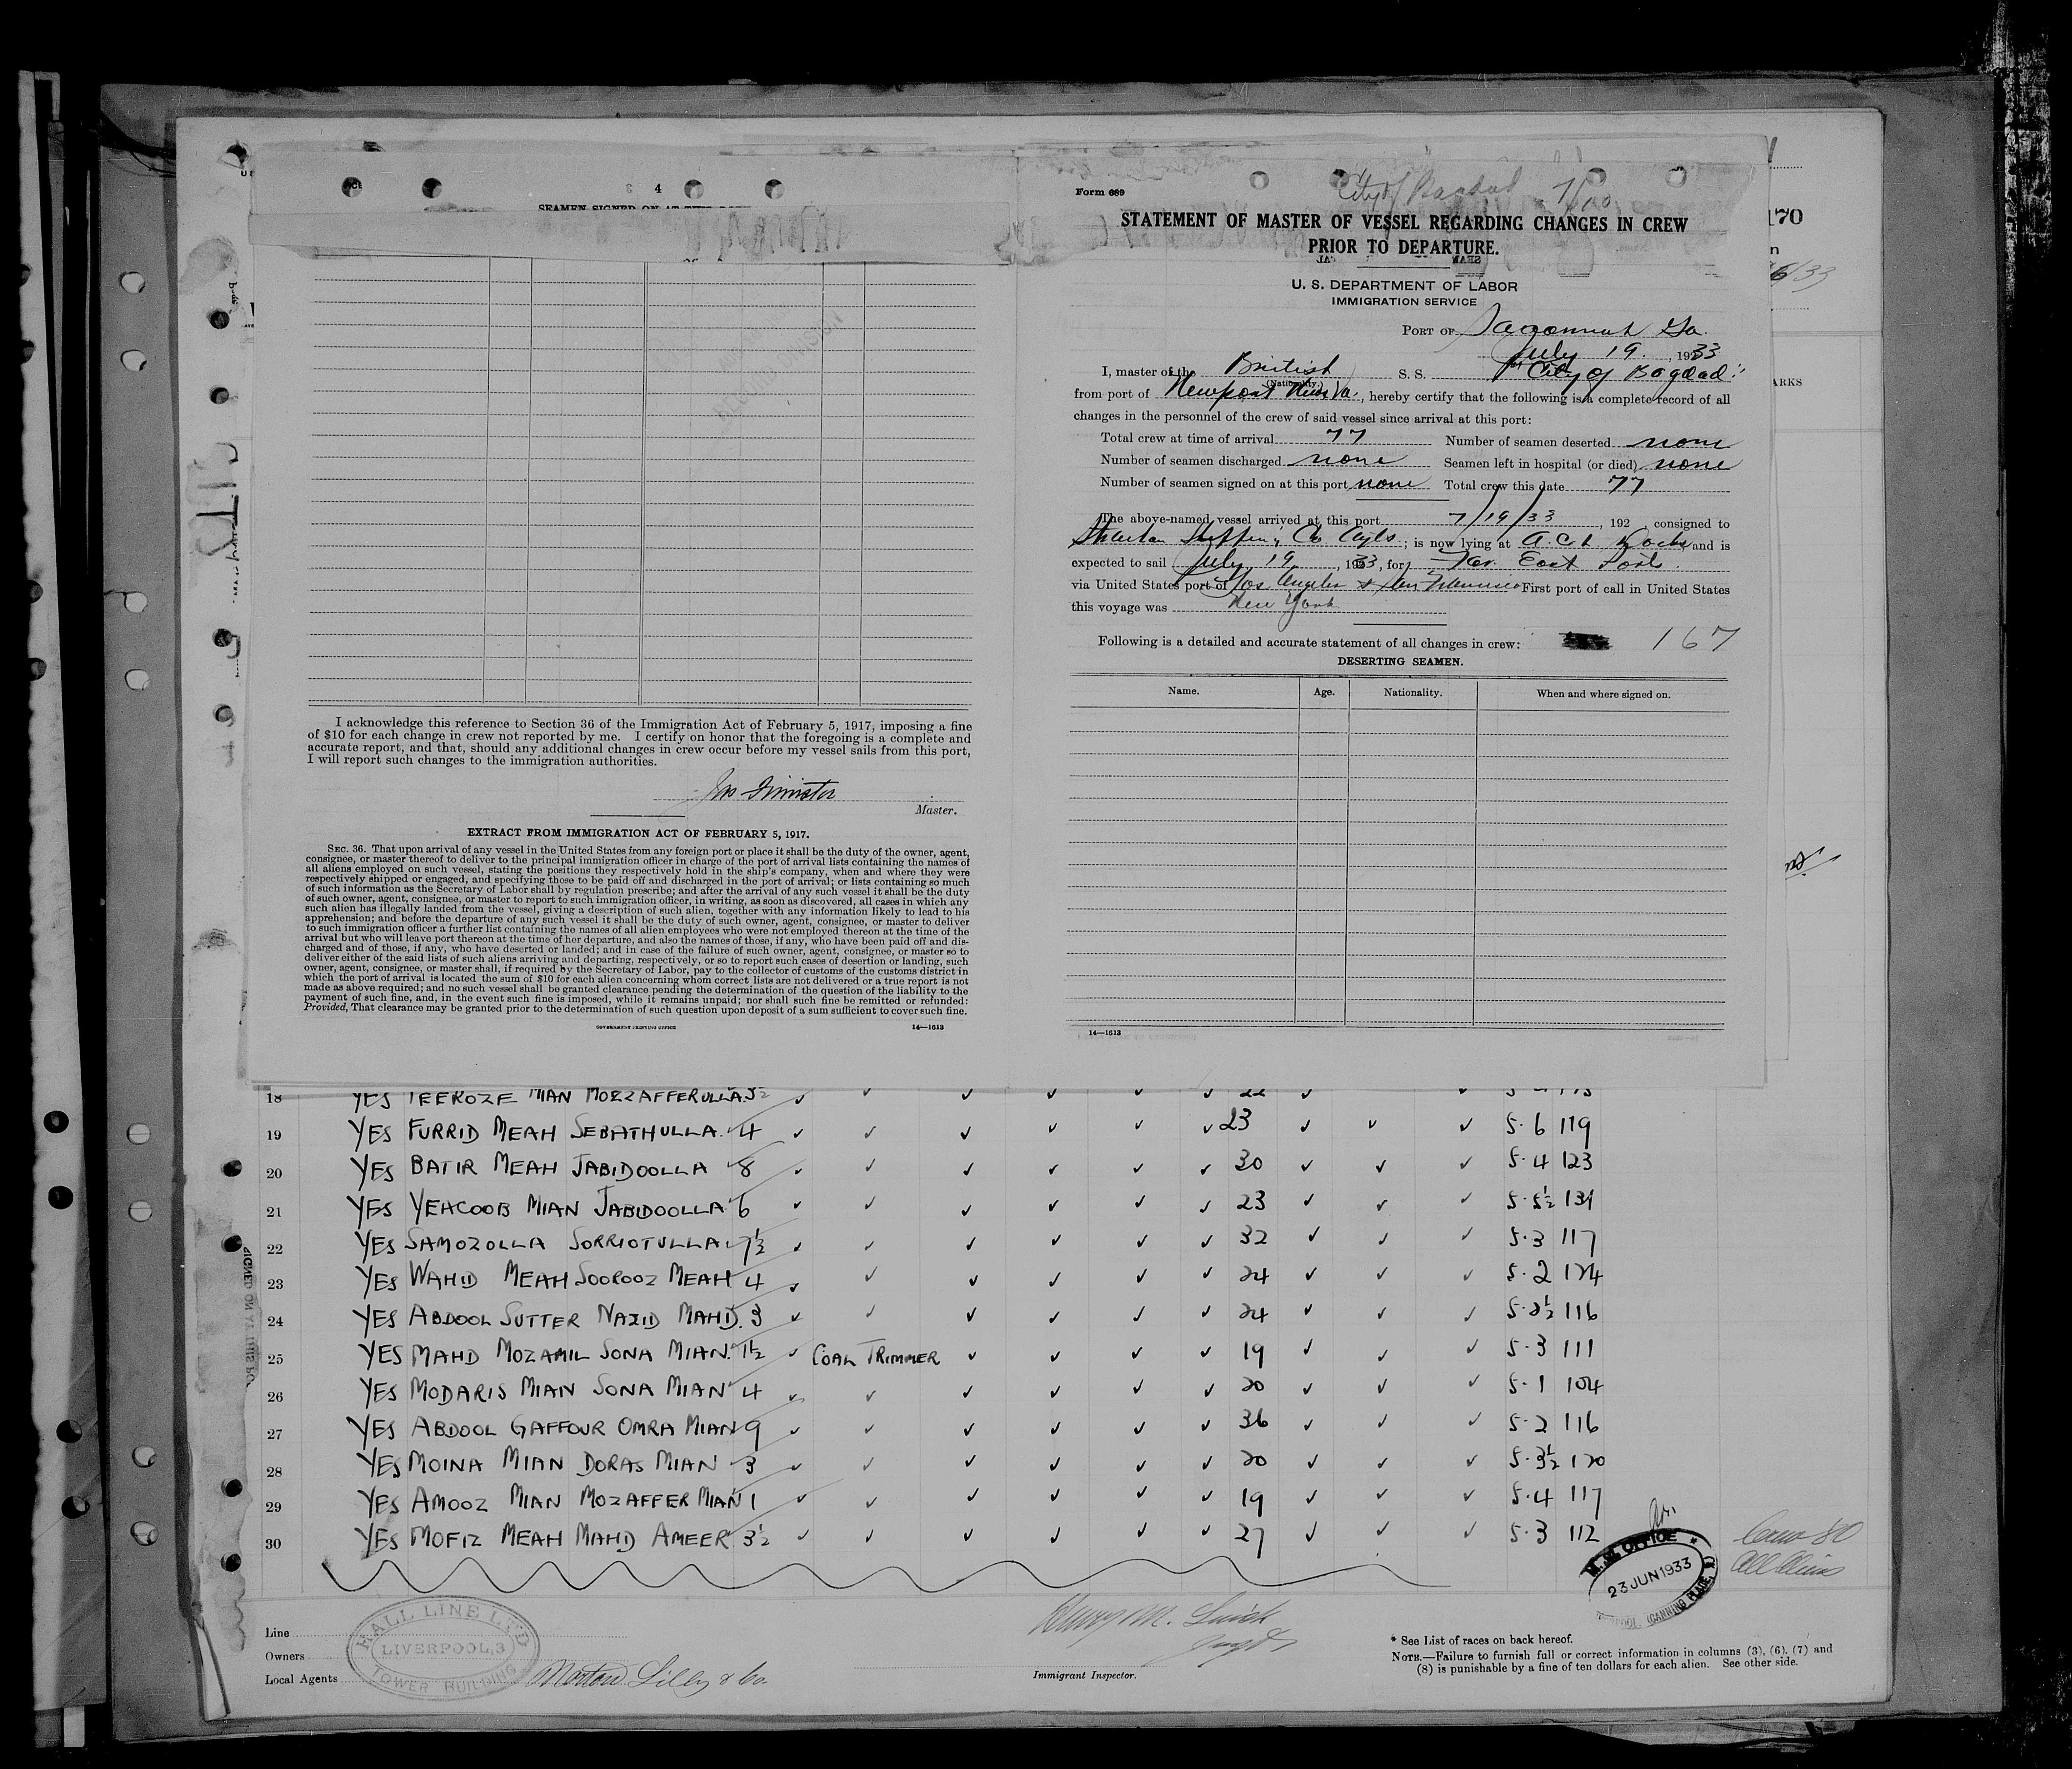 4
SEAMEN SIGNED ON AT THIS PORT
I acknowledge this reference to Section 36 of the Immigration Act of February 5, 1917, imposing a fine
of $10 for each change in crew not reported by me. I certify on honor that the foregoing is a complete and
accurate report, and that, should any additional changes in crew occur before my vessel sails from this port,
I will report such changes to the immigration authorities.
Master.
EXTRACT FROM IMMIGRATION ACT OF FEBRUARY 5, 1917.
SEC. 36. That upon arrival of any vessel in the United States from any foreign port or place it shall be the duty of the owner, agent,
consignee, or master thereof to deliver to the principal immigration officer in charge of the port of arrival lists containing the names of
all aliens employed on such vessel, stating the positions they respectively hold in the ship's company, when and where they were
respectively shipped or engaged, and specifying those to be paid off and discharged in the port of arrival; or lists containing so much
of such information as the Secretary of Labor shall by regulation prescribe; and after the arrival of any such vessel it shall be the duty
of such owner, agent, consignee, or master to report to such immigration officer, in writing, as soon as discovered, all cases in which any
such alien has illegally landed from the vessel, giving a description of such alien, together with any information likely to lead to his
apprehension; and before the departure of any such vessel it shall be the duty of such owner, agent, consignee, or master to deliver
to such immigration officer a further list containing the names of all alien employees who were not employed thereon at the time of the
arrival but who will leave port thereon at the time of her departure, and also the names of those, if any, who have been paid off and dis-
charged and of those, if any, who have deserted or landed; and in case of the failure of such owner, agent, consignee, or master so to
deliver either of the said lists of such aliens arriving and departing, respectively, or so to report such cases of desertion or landing, such
owner, agent, consignee, or master shall, if required by the Secretary of Labor, pay to the collector of customs of the customs district in
which the port of arrival is located the sum of $10 for each alien concerning whom correct lists are not delivered or a true report is not
made as above required; and no such vessel shall be granted clearance pending the determination of the question of the liability to the
payment of such fine, and, in the event such fine is imposed, while it remains unpaid; nor shall such fine be remitted or refunded:
Provided, That clearance may be granted prior to the determination of such question upon deposit of a sum sufficient to cover such fine.
GOVERNMENT PRINTING OFFICE 14—1613
Form 689
STATEMENT OF MASTER OF VESSEL REGARDING CHANGES IN CREW
PRIOR TO DEPARTURE.
U. S. DEPARTMENT OF LABOR
IMMIGRATION SERVICE
PORT OF Savannah Ga.
July 19, 1933
I, master of the British S. S. "City of Bagdad"
(Nationality.)
from port of Newport News Va., hereby certify that the following is a complete record of all
changes in the personnel of the crew of said vessel since arrival at this port:
Total crew at time of arrival 77 Number of seamen deserted none
Number of seamen discharged none Seamen left in hospital (or died) none
Number of seamen signed on at this port none Total crew this date 77
The above-named vessel arrived at this port 7/19/33, 192 , consigned to
Strachan Shipping Co Agts; is now lying at A.C.L Docks and is
expected to sail July 19, 1933, for Far East Ports
via United States port of Los Angeles & San Francisco First port of call in United States
this voyage was New York
Following is a detailed and accurate statement of all changes in crew: 167
DESERTING SEAMEN.
Name. Age. Nationality. When and where signed on.
14—1613
170
6/33
ARKS
18 YES TEEROZE MIAN MOZZAFFERULLA 22
19 YES FURRID MEAH SEBATHULLA 4 23 5.6 119
20 YES BATIR MEAH JABIDOOLLA 8 30 5.4 123
21 YES YEACOOB MIAN JABIDOOLLA 6 23 5.5½ 131
22 YES SAMOZOLLA SORRIOTULLA 7½ 32 5.3 117
23 YES WAHID MEAH SOOROOZ MEAH 4 24 5.2 124
24 YES ABDOOL SUTTER NAZID MAHD. 3 24 5.2½ 116
25 YES MAHD MOZAMIL SONA MIAN 1½ COAL TRIMMER 19 5.3 111
26 YES MODARIS MIAN SONA MIAN 4 20 5.1 104
27 YES ABDOOL GAFFOUR OMRA MIAN 9 36 5.2 116
28 YES MOINA MIAN DORAS MIAN 3 20 5.3½ 120
29 YES AMOOZ MIAN MOZAFFER MIAN 1 19 5.4 117
30 YES MOFIZ MEAH MAHD AMEER 3½ 27 5.3 112
M.M. OFFICE
23 JUN 1933
(CANNING PLACE)
Line
Owners
Local Agents Norton Lilly & Co.
HALL LINE LTD
LIVERPOOL,3
TOWER BUILDING
Immigrant Inspector.
* See List of races on back hereof.
NOTE.—Failure to furnish full or correct information in columns (3), (6), (7) and
(8) is punishable by a fine of ten dollars for each alien. See other side.